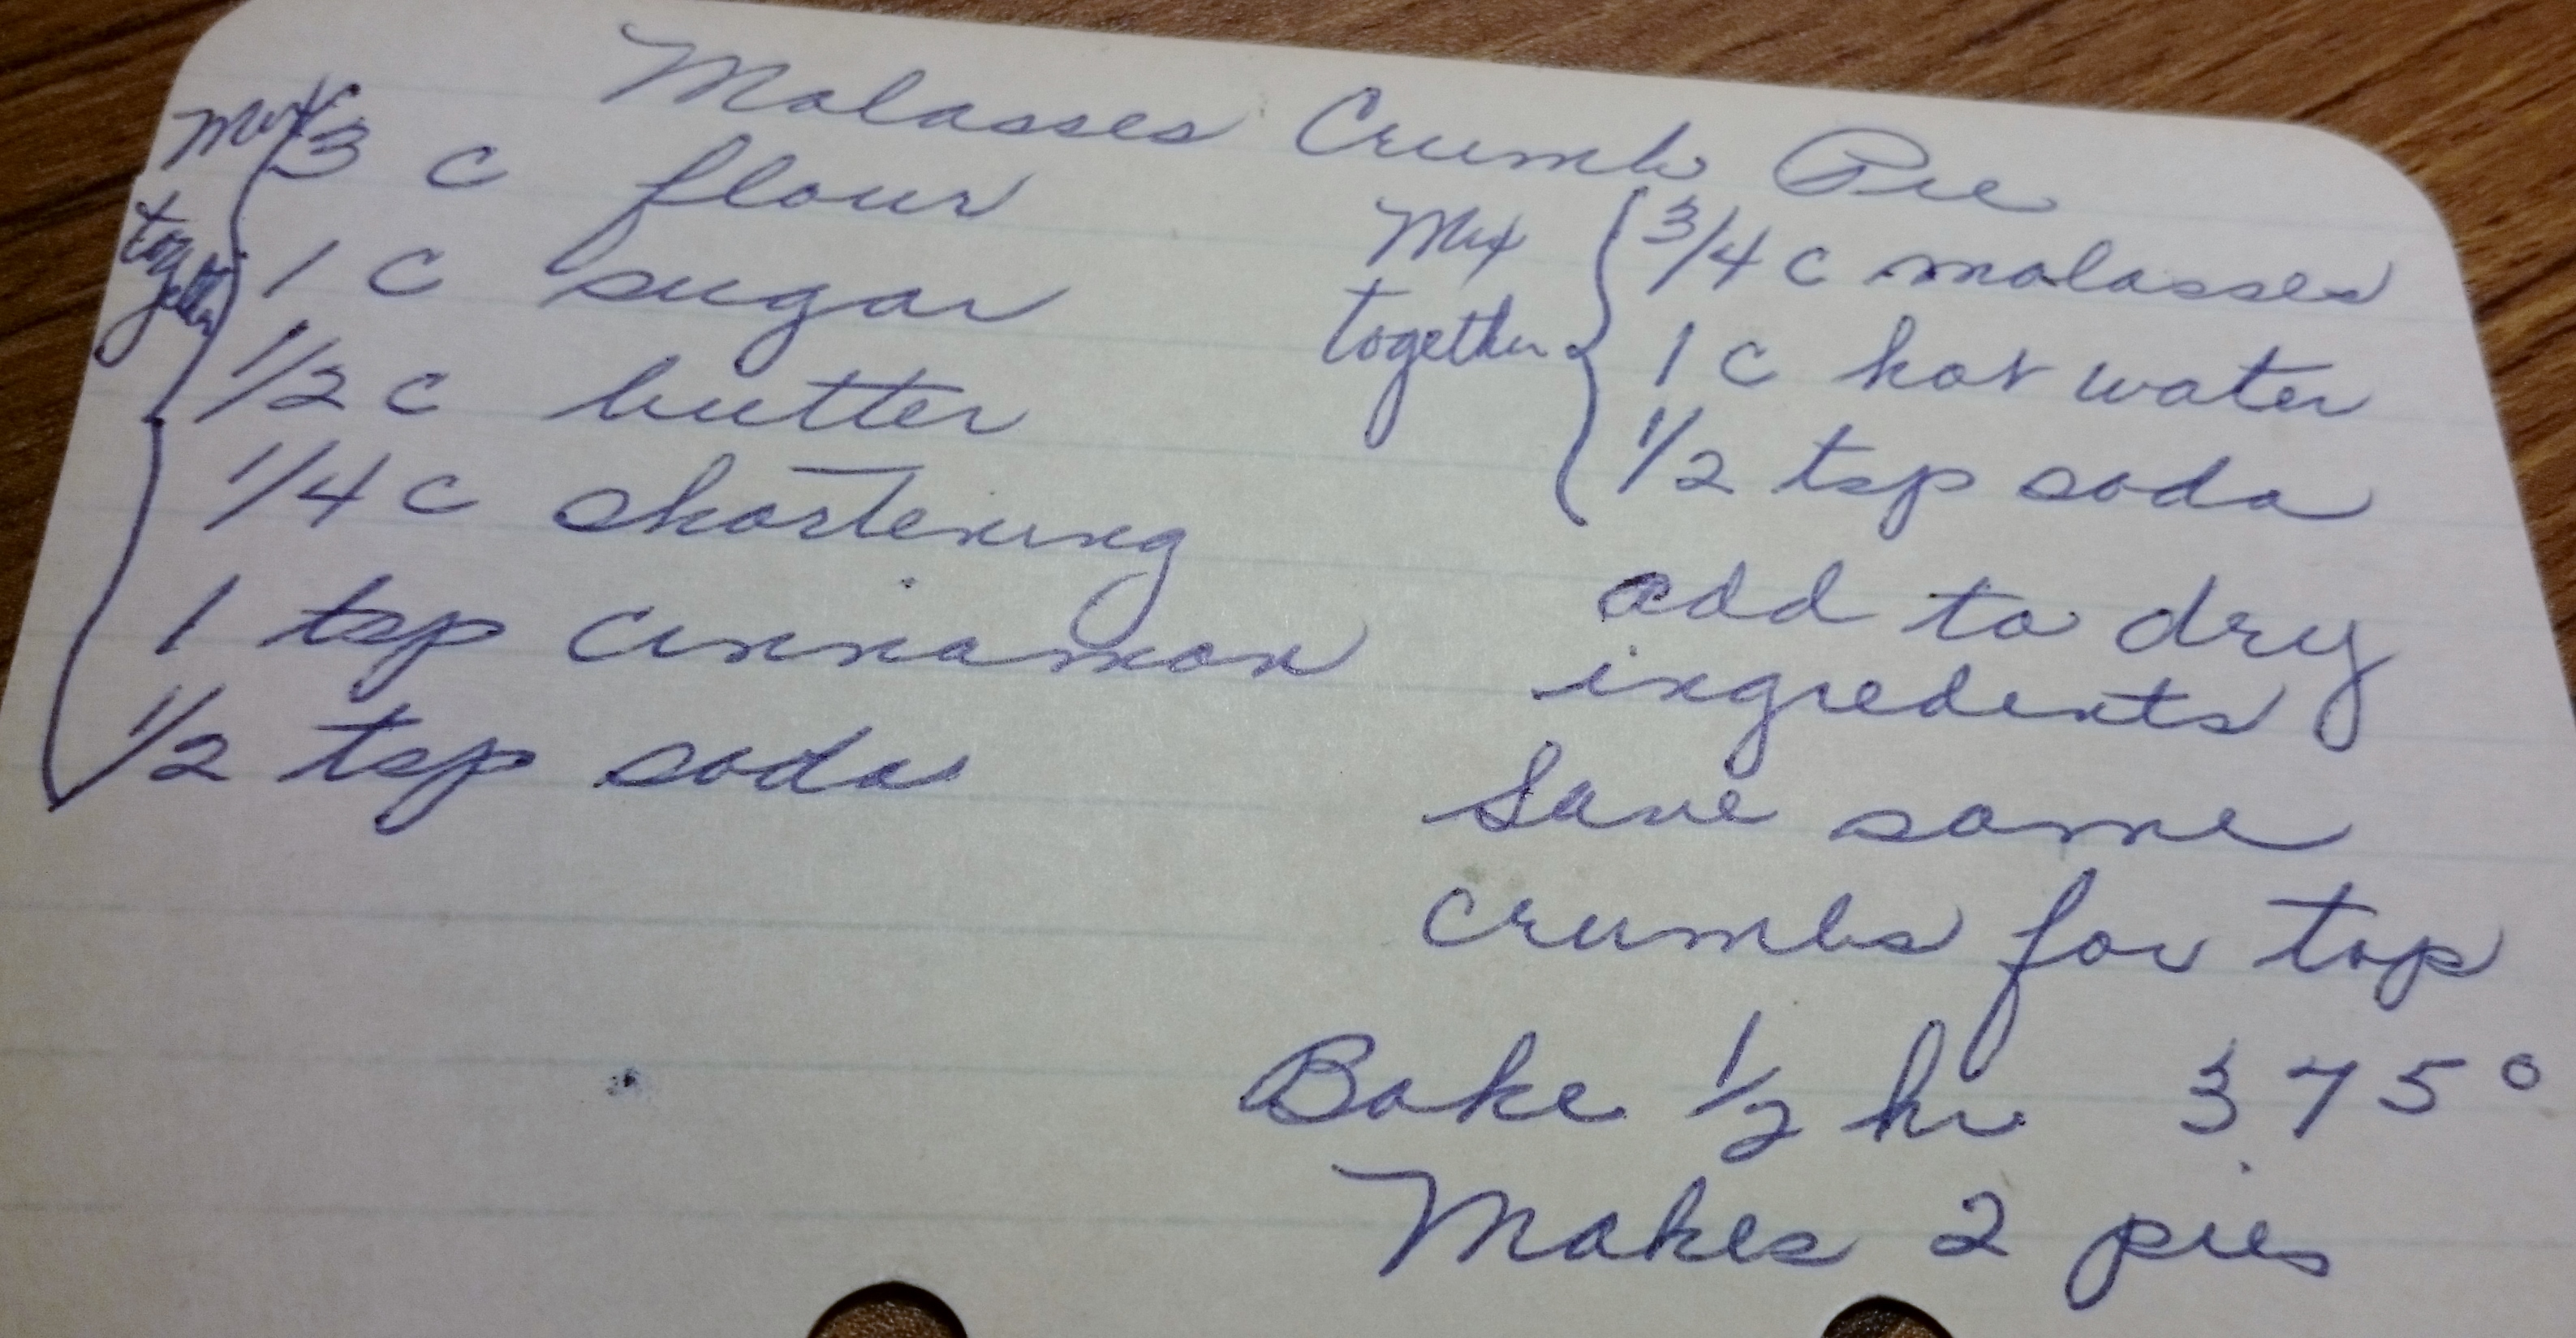 Molasses Crumb Pie
Mix
together
3 c flour
1 c sugar
1/2 c butter
1/4 c shortening
1 tsp cinnamon
1/2 tsp soda
Mix
together
3/4 c molasses
1 c hot water
1/2 tsp soda
add to dry
ingredents
Save some
crumbs for top
Bake 1/2 hr 375°
Makes 2 pies